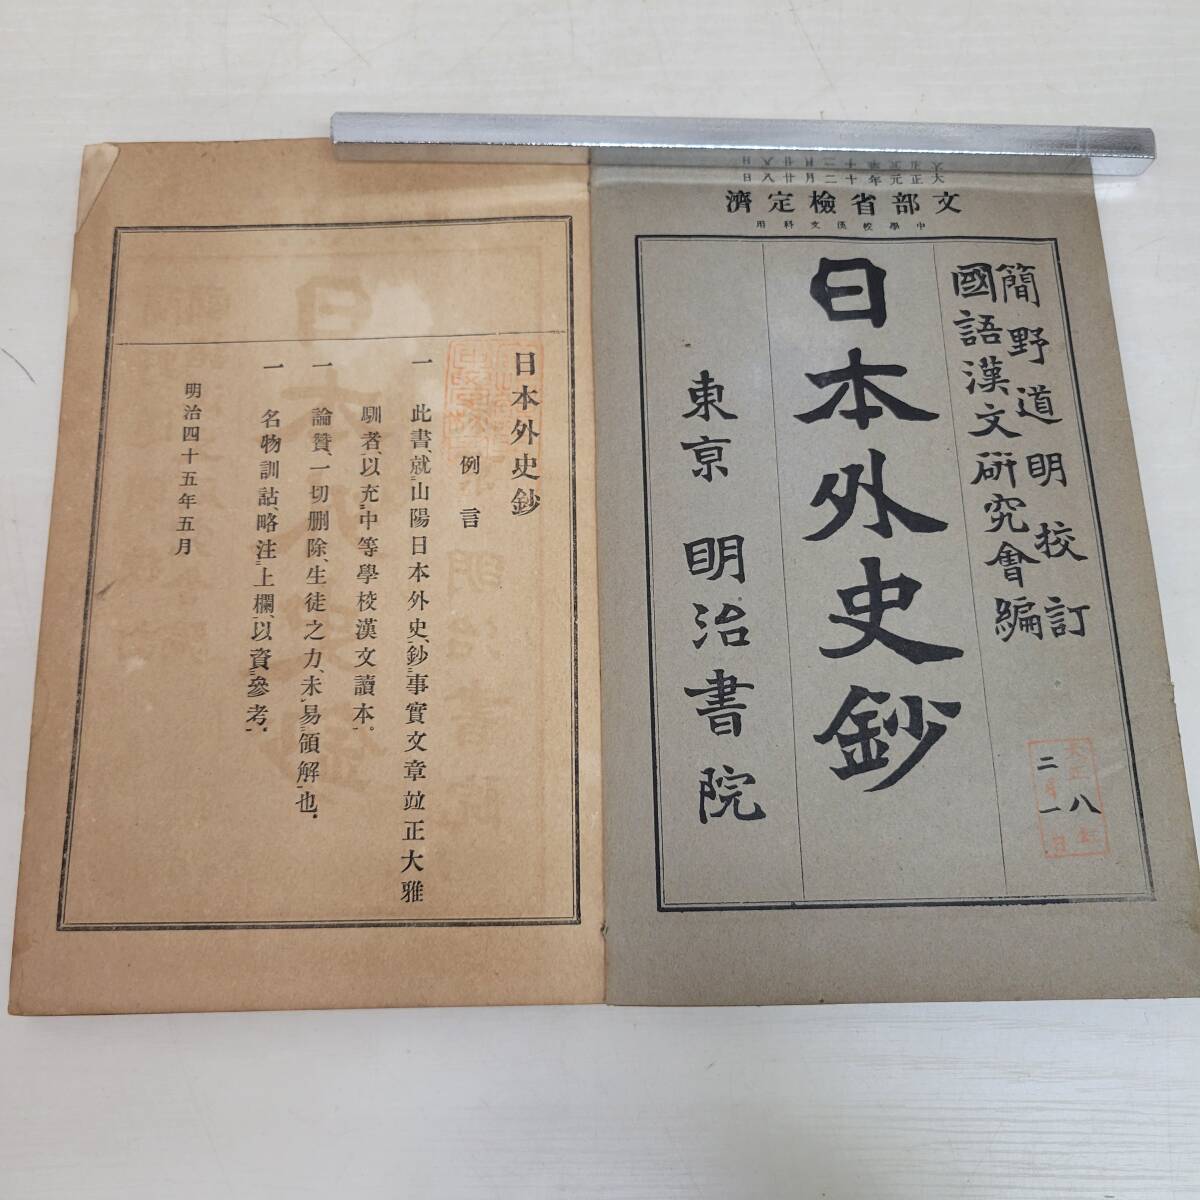 大正元年十二月廿八日
文部省檢定濟
中學校漢文科用
簡野道明校訂
國語漢文研究會編
日本外史鈔
東京 明治書院
大正八年
二月一日
日本外史鈔
例言
一 此書、就山陽日本外史、鈔事實文章竝正大雅
馴者、以充中等學校漢文讀本。
一 論贊、一切刪除、生徒之力、未易領解也。
一 名物訓詁、略注上欄、以資參考。
明治四十五年五月